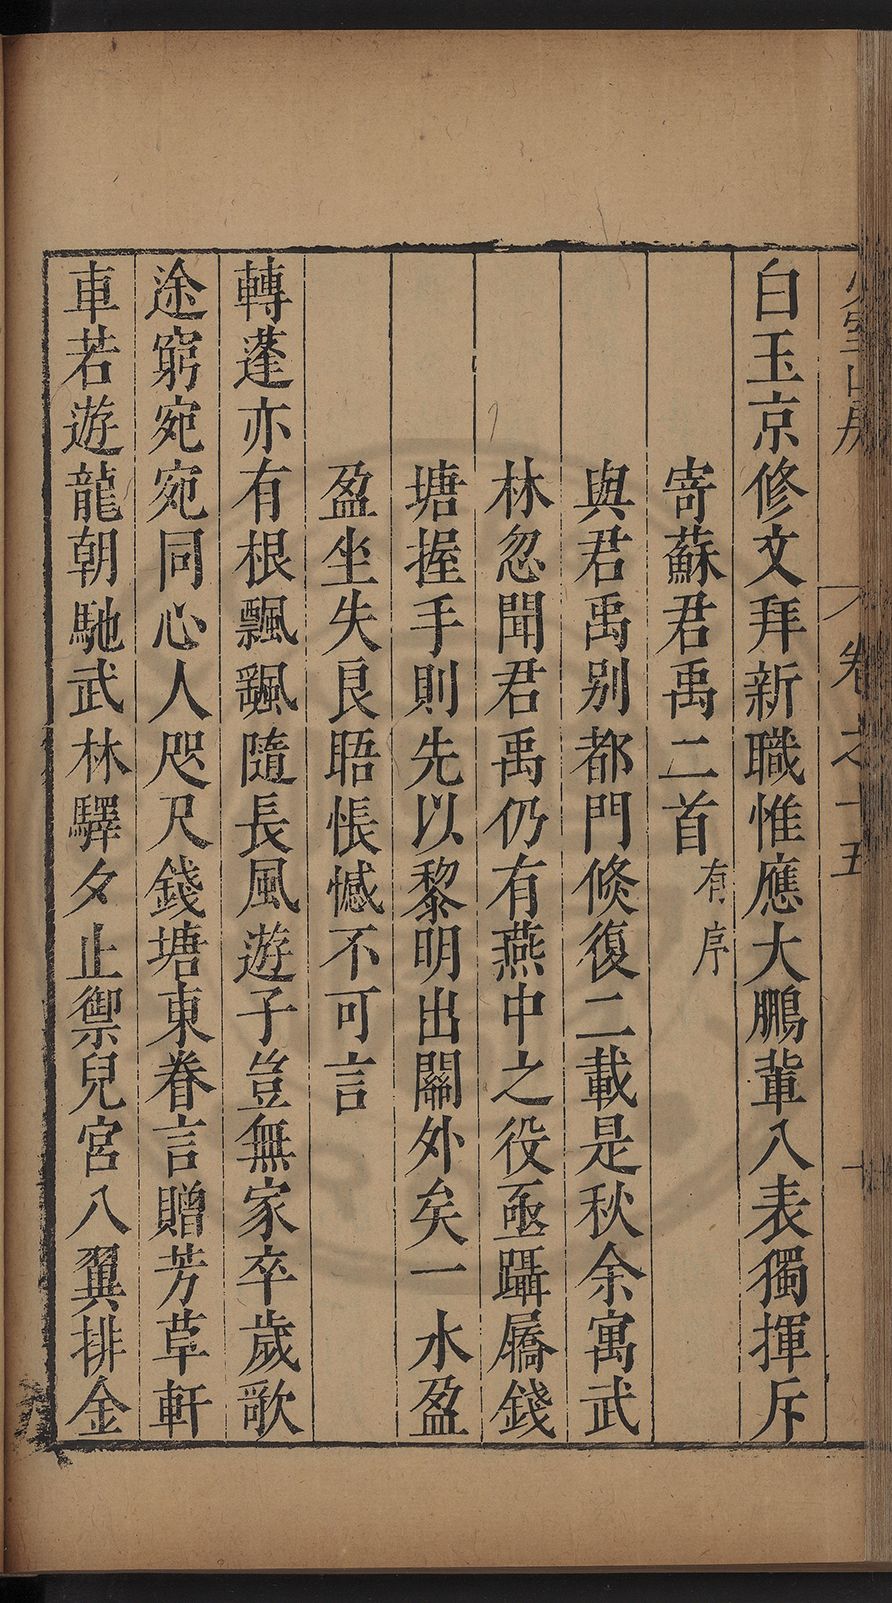 少室山房 卷之十五
白玉京修文拜新職惟應大鵬輩八表獨揮斥
寄蘇君禹二首有序
與君禹别都門倐復二載是秋余寓武
林忽聞君禹仍有燕中之役亟躡屩錢
塘握手則先以黎明出關外矣一水盈
盈坐失良晤悵憾不可言
轉蓬亦有根飄颻隨長風遊子豈無家卒歲歌
途窮宛宛同心人咫尺錢塘東眷言贈芳草軒
車若遊龍朝馳武林驛夕止禦兒宮八翼排金